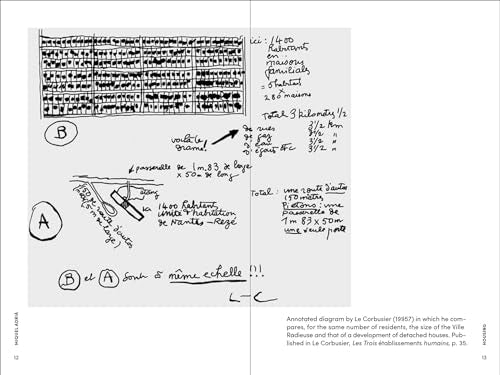 ici : 1400
habitants
en
maisons
familiales
= 5 habitats
x
280 maisons
Total 3 kilomètres 1/2
de rues 3 1/2 km
de gaz 3 1/2 "
d'eau 3 1/2 "
d'égouts etc 3 1/2 "
B
voilà le
drame!
passerelle de 1m,83 de large
x 50m de long
étang
ici
1400 habitants
unité d'habitation
de Nantes-Rezé
150m de route d'autos
A
Total : une route d'autos
150 mètres
Piétons : une
passerelle de
1m 83 x 50m
une seule porte
B et A sont à même echelle!!!
L-C
Annotated diagram by Le Corbusier (19957) in which he com-
pares, for the same number of residents, the size of the Ville
Radieuse and that of a development of detached houses. Pub-
lished in Le Corbusier, Les Trois établissements humains, p. 35.
MIQUEL ADRIÀ
12
HOUSING
13